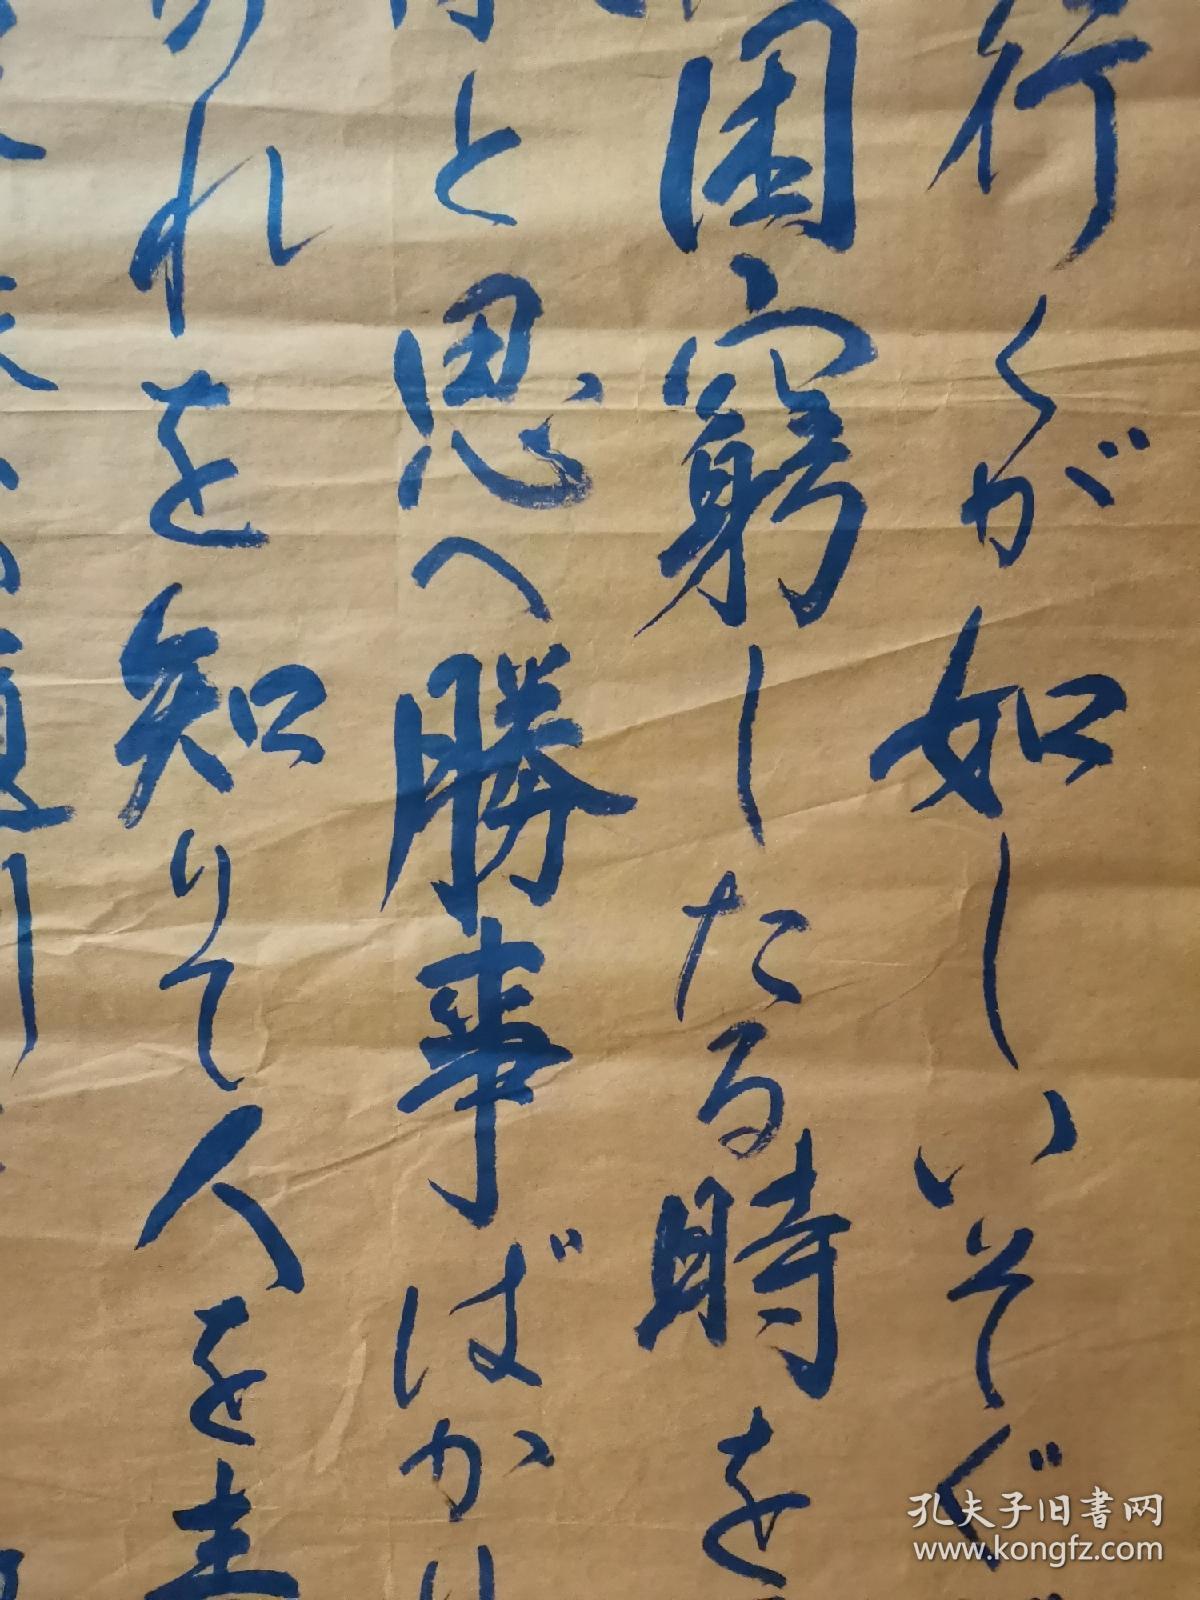 行くが如しいそぐ
困窮したる時を
と思へ勝事ばかり
のれを知りて人を責
孔夫子旧书网
www.kongfz.com